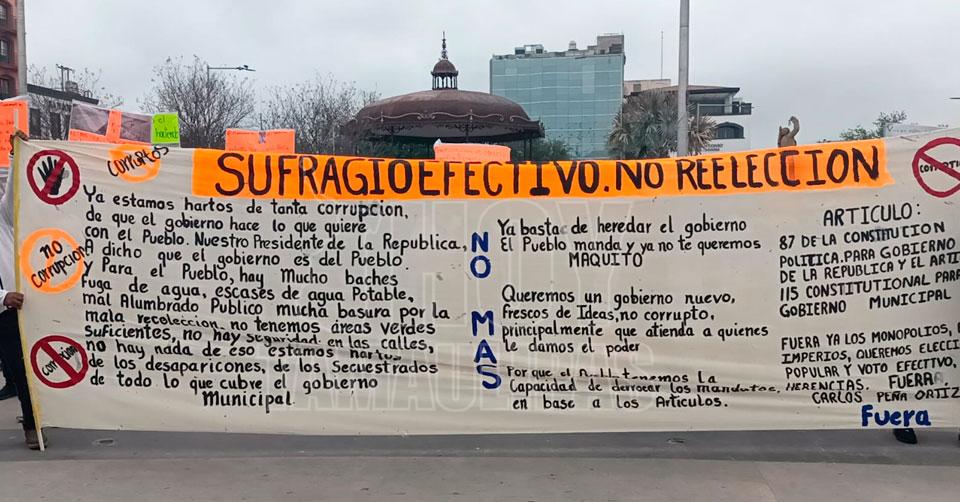 el
hacienc
corruptos
SUFRAGIO EFECTIVO. NO REELECCION
Ya estamos hartos de tanta corrupcion,
de que el gobierno hace lo que quiere
con el Pueblo. Nuestro Presidente de la Republica,
A dicho que el gobierno es del Pueblo
y Para el Pueblo, hay Mucho baches
Fuga de agua, escases de agua Potable,
mal Alumbrado Publico mucha basura por la
mala recoleccion, no tenemos áreas verdes
suficientes, no hay seguridad en las calles,
no hay nada de eso estamos hartos
de los desapariciones, de los Secuestrados
de todo lo que cubre el gobierno
Municipal.
no
corrupcion
corrupcion
NO MAS
Ya basta de heredar el gobierno
El Pueblo manda y ya no te queremos
MAQUITO
Queremos un gobierno nuevo,
frescos de Ideas, no corrupto,
principalmente que atienda a quienes
le damos el poder
Por que el tenemos la
Capacidad de derrocar los mandatos,
en base a los Articulos.
ARTICULO:
87 DE LA CONSTITUCION
POLITICA. PARA GOBIERNO
DE LA REPUBLICA Y EL ARTI
115 CONSTITUCIONAL PARA
GOBIERNO MUNICIPAL
FUERA YA LOS MONOPOLIOS,
IMPERIOS, QUEREMOS ELECCI
POPULAR Y VOTO EFECTIVO,
HERENCIAS. FUERA
CARLOS PEÑA ORTIZ
Fuera
HOY
TAMAULIPAS